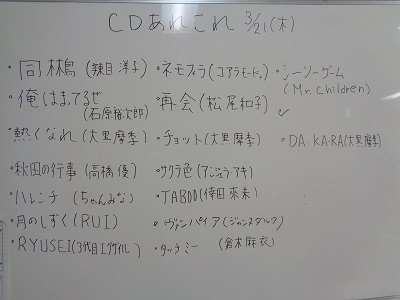 CDあれこれ 3/21(木)
・同棲(辣目洋子)
・ネモフィラ(コアラモード.)
・シーソーゲーム
(Mr.Children)
・俺はまってるぜ
(石原裕次郎)
・再会(松尾和子)
・熱くなれ(大黒摩季)
・チョット(大黒摩季)
・DA KA・RA(大黒摩季)
・秋田の行事(高橋優)
・サクラ色(アンジェラ・アキ)
・ハレンチ(ちゃんみな)
・TABOO(倖田來未)
・月のしずく(RUI)
・ヴァンパイア(ジャンヌダルク)
・RYUSEI(3代目エグザイル)
・タッチミー(倉木麻衣)